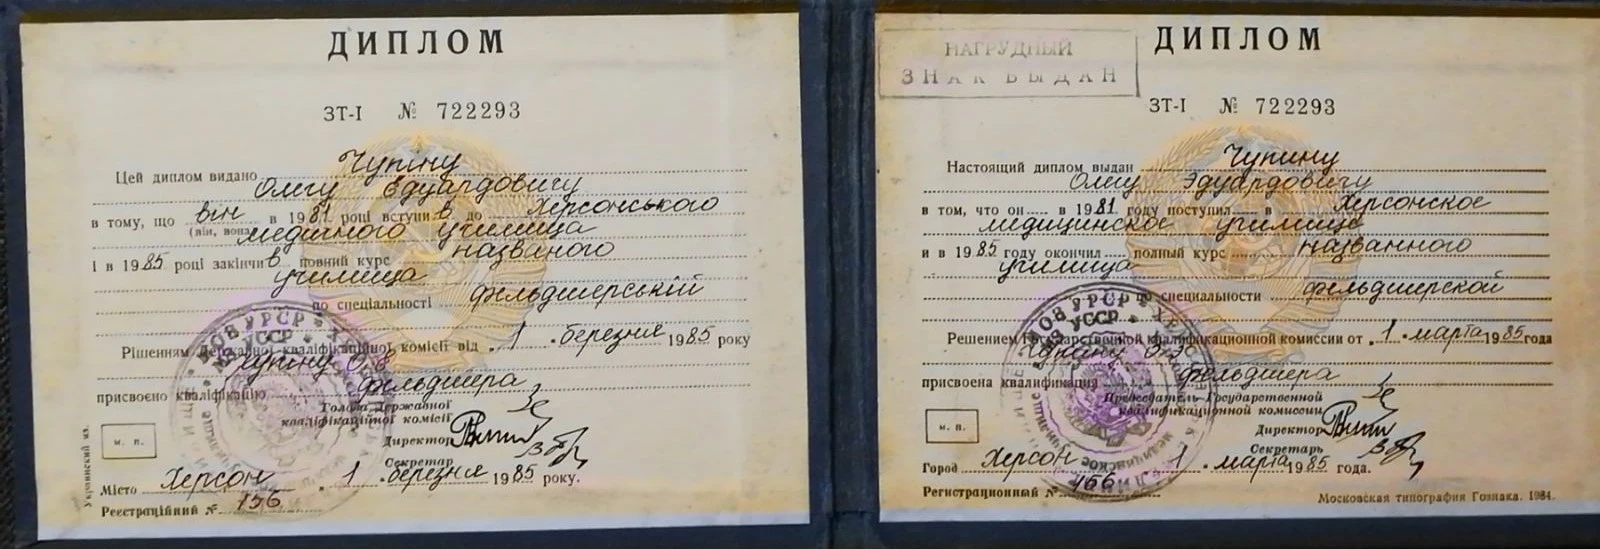 ДИПЛОМ
ЗТ-I № 722293
Цей диплом видано Чупіну
Олегу Едуардовичу
в тому, що він в 1981 році вступив до Херсонського
(він, вона)
медичного училища
і в 1985 році закінчив повний курс названого
училища
по спеціальності фельдшерській
Рішенням Державної кваліфікаційної комісії від 1 березня 1985 року
Чупіну О.Е.
присвоєно кваліфікацію фельдшера
Голова Державної
кваліфікаційної комісії
м. п.
Директор
Секретар
Місто Херсон 1 березня 1985 року.
Реєстраційний № 156
Украинский яз.
НАГРУДНЫЙ
ЗНАК ВЫДАН
ДИПЛОМ
ЗТ-I № 722293
Настоящий диплом выдан Чупину
Олегу Эдуардовичу
в том, что он в 1981 году поступил в Херсонское
медицинское училище
и в 1985 году окончил полный курс названного
училища
по специальности фельдшерской
Решением Государственной квалификационной комиссии от 1 марта 1985 года
Чупину О.Э.
присвоена квалификация фельдшера
Председатель Государственной
квалификационной комиссии
м. п.
Директор
Секретарь
Город Херсон 1 марта 1985 года.
Регистрационный №
Московская типография Гознака. 1984.